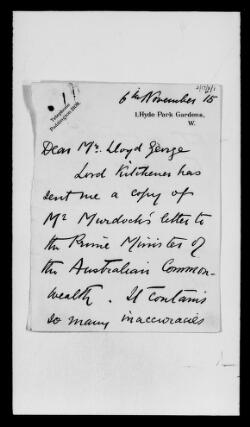 6th November 15
Telephone
Paddington
1, Hyde Park Gardens,
W.
Dear Mr. Lloyd George
Lord Kitchener has
sent me a copy of
Mr Murdoch's letter to
the Prime Minister of
the Australian Common-
wealth. It contains
so many inaccuracies